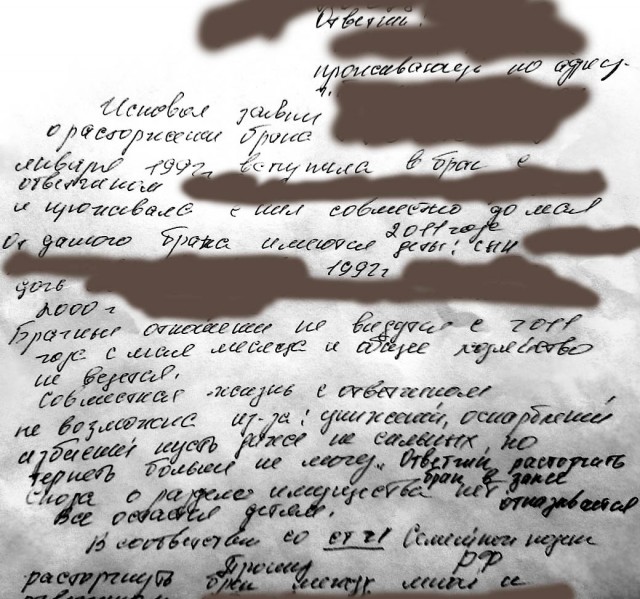 Ответчик:
проживающ по адресу
Исковое заявлен
о расторжении брака
января 1992г. вступила в брак с
ответчиком
и проживала с ним совместно до мая
2011 года
От данного брака имеются дети: сын
1992г
дочь
2000 г
Брачные отношения не ведутся с 2011
года с мая месяца и общее хозяйство
не ведется.
Совместная жизнь с ответчиком
не возможна из-за: унижений, оскорблений
избиений пусть даже не сильных, но
терпеть больше не могу. Ответчик расторгать
брак в загсе
Спора о разделе имущества нет отказывается
Все остается детям.
В соответствии со ст 21 Семейного
Прошу РФ
расторгнуть брак между мной и
ответчиком